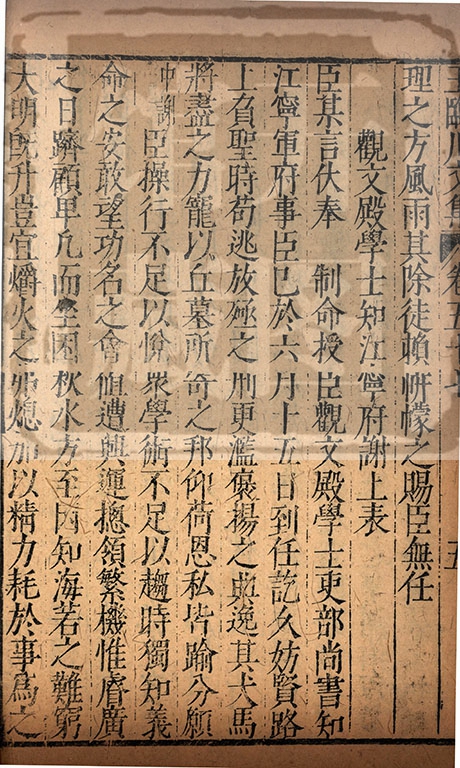 王臨川文集 卷五十七 五
理之方風雨其除徒賴帡幪之賜臣無任
觀文殿學士知江寧府謝上表
臣某言伏奉 制命授臣觀文殿學士吏部尚書知
江寧軍府事臣已於六月十五日到任訖久妨賢路
上負聖時苟逃放殛之刑更濫襃揚之典逸其犬馬
將盡之力寵以丘墓所寄之邦仰荷恩私皆踰分願
中謝 臣操行不足以悅衆學術不足以趨時獨知義
命之安敢望功名之會値遭興運揔領繁機惟睿廣
之日躋顧卑凡而坐困秋水方至因知海若之難窮
大明旣升豈宜爝火之弗熄加以精力耗於事爲之